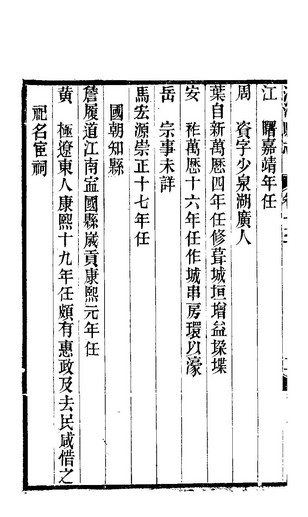 江　曙嘉靖年任
周　資字少泉湖廣人
葉自新萬曆四年任修葺城垣增益垜堞
安　祚萬曆十六年任作城串房環以濠
岳　宗事未詳
馬宏源崇正十七年任
國朝知縣
詹履道江南寍國縣歲貢康熙元年任
黃　極遼東人康熙十九年任頗有惠政及去民咸借之
祀名宦祠